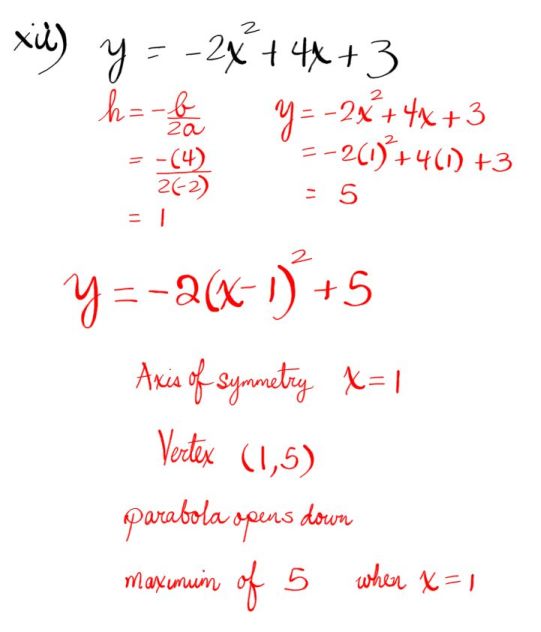 xii) y = -2x² + 4x + 3
h = -b/2a y = -2x² + 4x + 3
= -(4)/2(-2) = -2(1)² + 4(1) + 3
= 1 = 5
y = -2(x-1)² + 5
Axis of symmetry x = 1
Vertex (1,5)
parabola opens down
maximum of 5 when x = 1